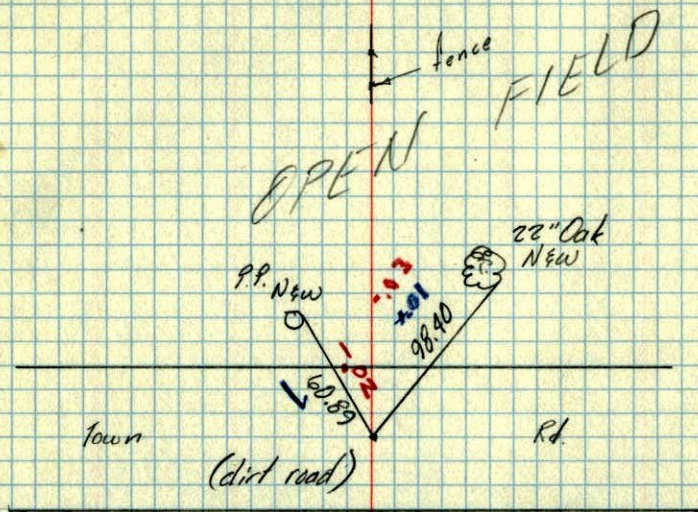 fence
OPEN FIELD
22" Oak
New
P.P. New
-.03
+.01
98.40
-.02
60.89
Town Rd.
(dirt road)